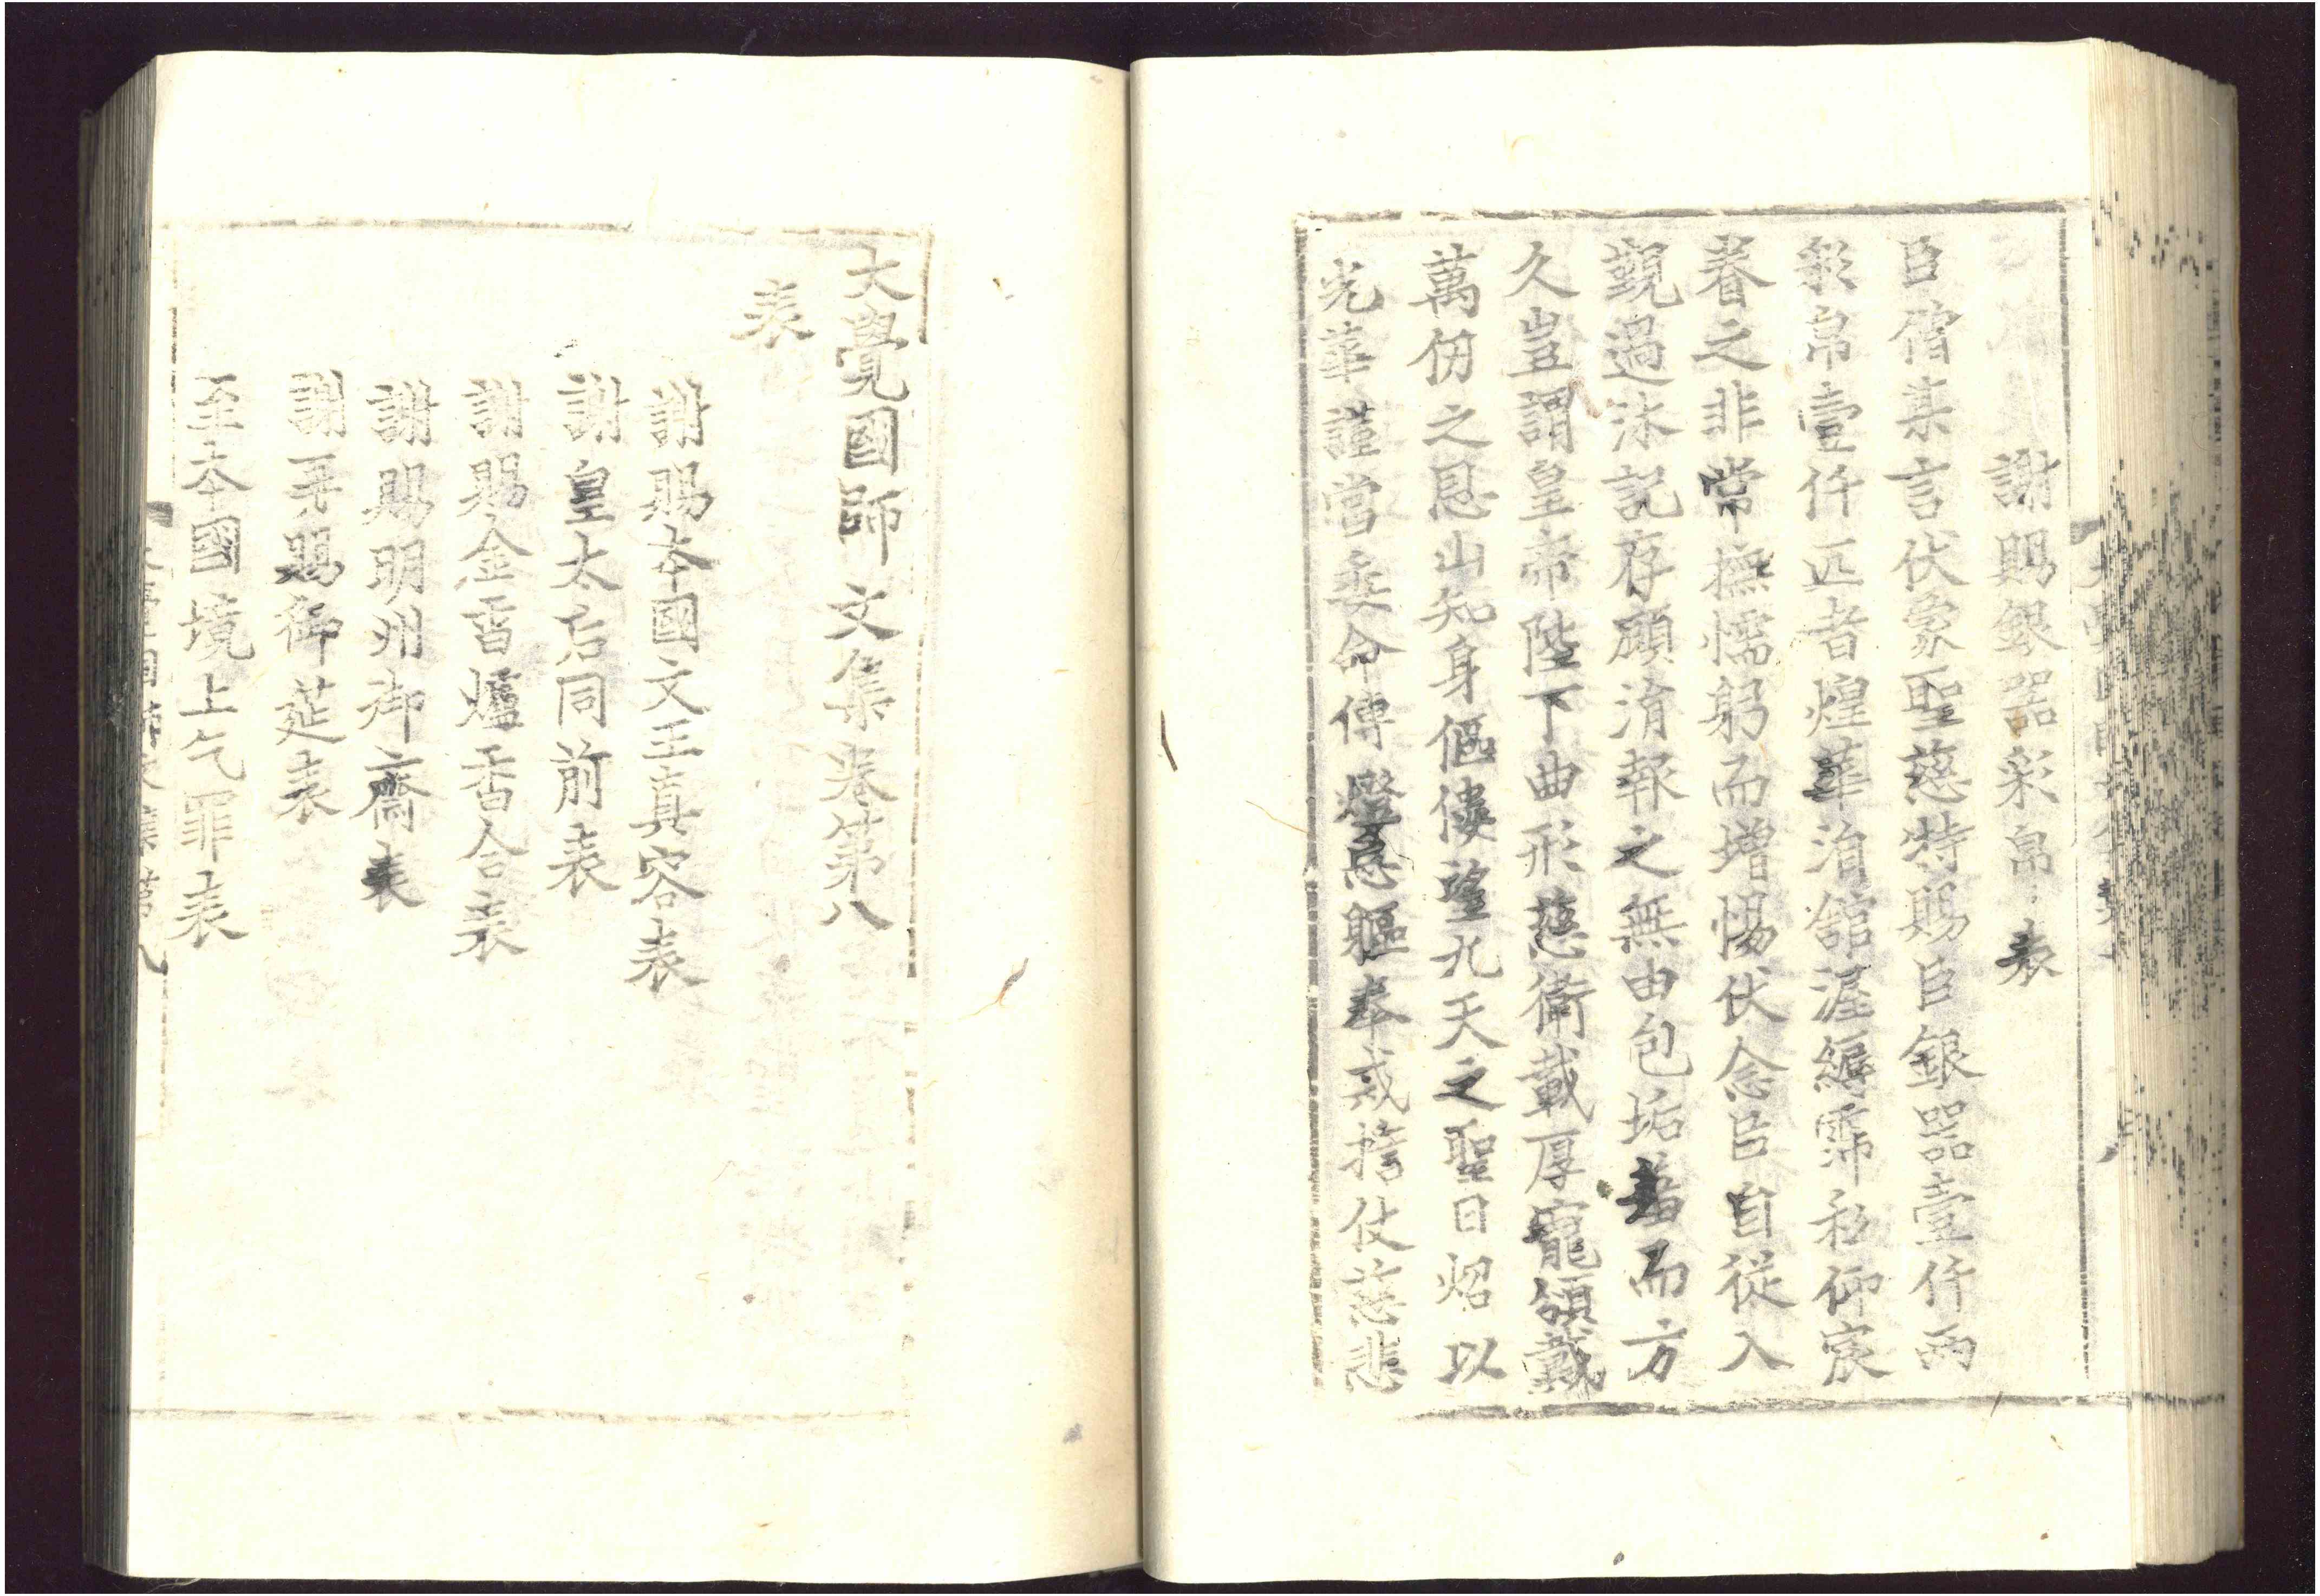 謝賜銀器彩帛表
臣僧某言伏蒙聖慈特賜臣銀器壹仟兩
綵帛壹仟疋者煌華湑舘渥縟霈私仰宸
眷之非常撫懦躬而增惕伏念臣自從入
覲過沐記存顧淯報之無由包垢 而方
久豈謂皇帝陛下曲形慈衛載厚寵頒戴
萬仞之恩山知身傴僂望九天之聖日炤以
光華謹當委命傳燈忘軀奉戒 仗慈悲
大覺國師文集卷第八
表
謝賜本國文王真容表
謝皇太后同前表
謝賜金香爐香合表
謝賜明州御齋表
謝再賜御莚表
至本國境上乞罪表